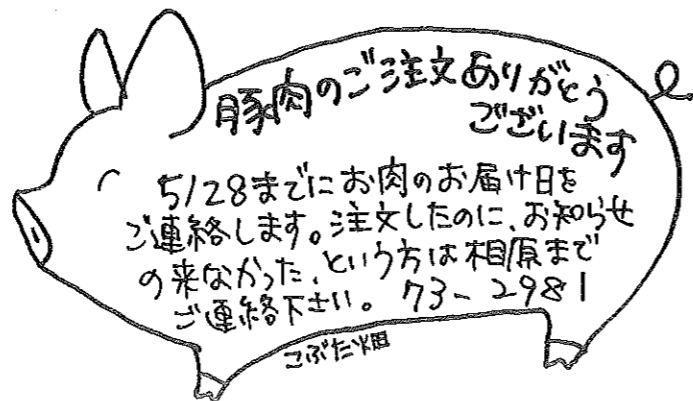 豚肉のご注文ありがとう
ございます
5/28までにお肉のお届け日を
ご連絡します。注文したのに、お知らせ
の来なかった、という方は相原まで
ご連絡下さい。 73-2981
こぶた畑